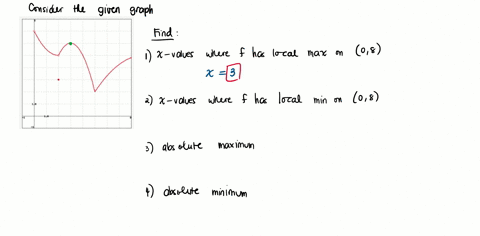 Consider the given graph
Find:
1) x-values where f has local max on (0,8)
x = 3
2) x-values where f has local min on (0,8)
3) absolute maximum
4) absolute minimum